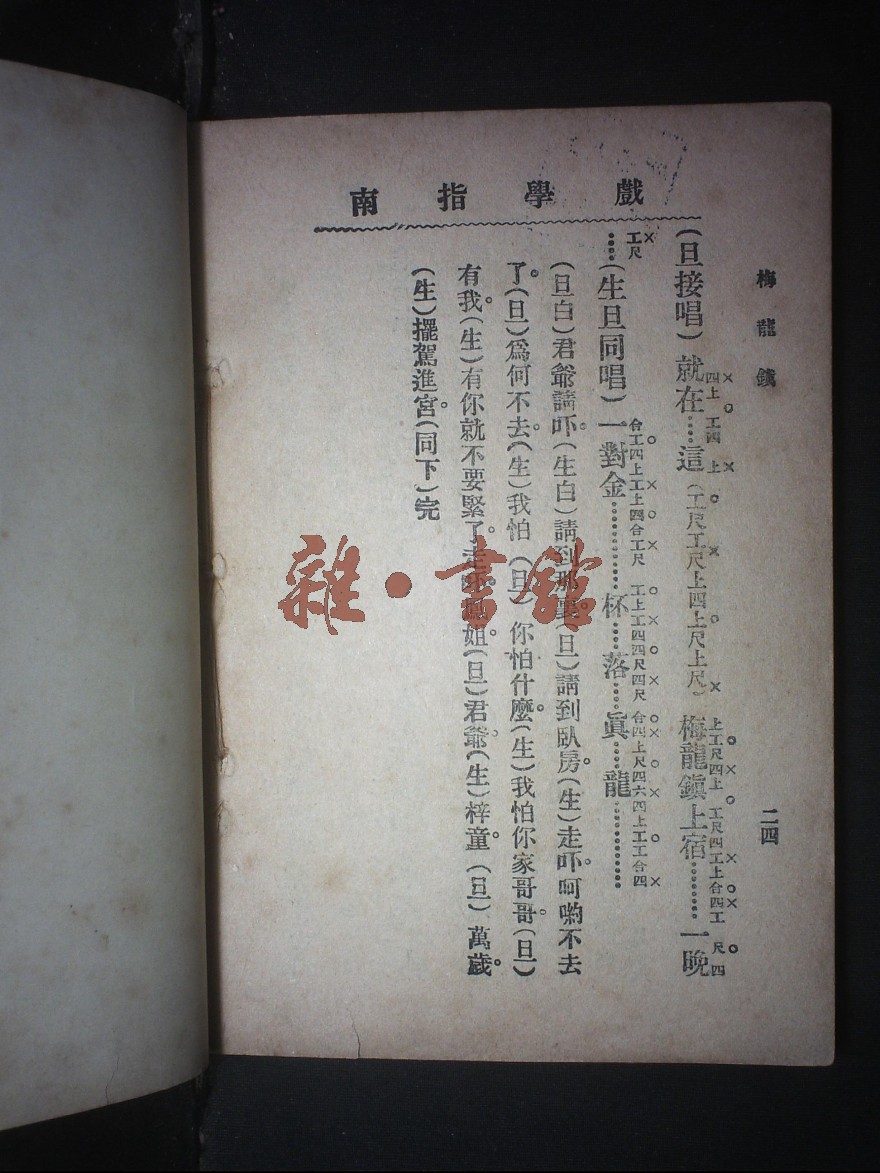 戲學指南
梅龍鎮
二四
(旦接唱)就在……這(工尺工尺上四上尺上尺)梅龍鎮上宿………一晚
……(生旦同唱)一對金…………杯……落………眞……龍…………
(旦白)君爺請吓。(生白)請到那裏(旦)請到臥房。(生)走吓。呵喲不去
了。(旦)爲何不去。(生)我怕(旦)你怕什麼。(生)我怕你家哥哥。(旦)
有我。(生)有你就不要緊了。走吓鳳姐。(旦)君爺。(生)梓童(旦)萬歲。
(生)擺駕進宮。(同下)完
雜·書館